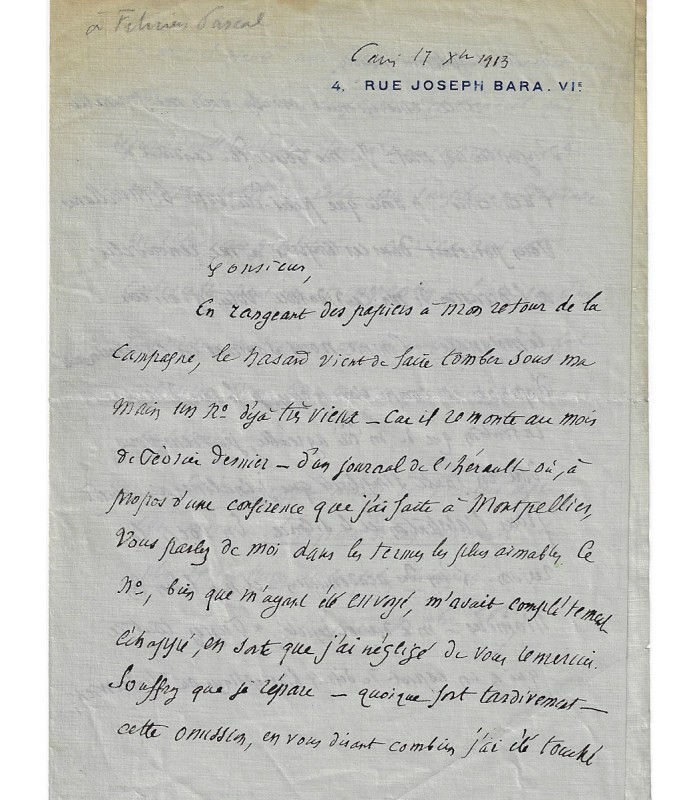 à Félicien Pascal
Paris 17 Xbre 1913
4, RUE JOSEPH BARA. VIE
Monsieur,
En rangeant des papiers à mon retour de la
Campagne, le hasard vient de faire tomber sous ma
main un No déjà très vieux – Car il remonte au mois
de février dernier – d'un journal de l'hérault où, à
propos d'une conférence que j'ai faite à Montpellier,
Vous parlez de moi dans les termes les plus aimables. Ce
No, bien que m'ayant été envoyé, m'avait complétement
échappé, en sorte que j'ai négligé de vous remercier.
Souffrez que je répare – quoique fort tardivement –
cette omission, en vous disant combien j'ai été touché